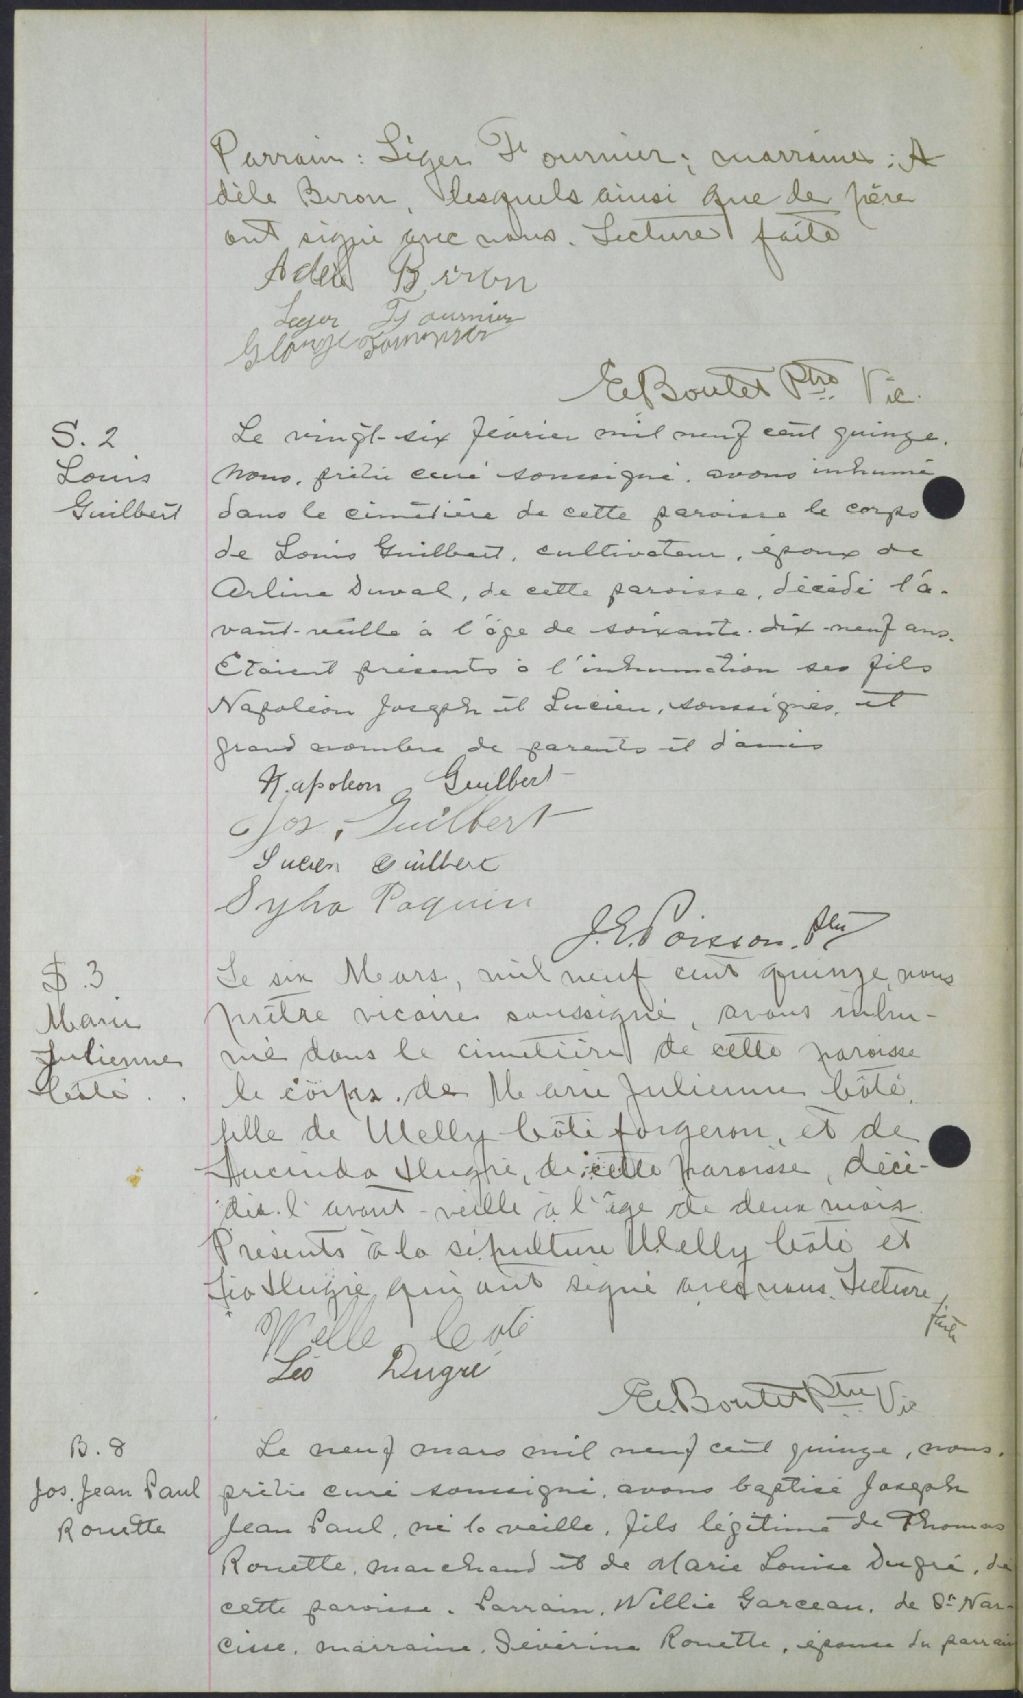 Parrain: Léger Fournier; marraine: A
dèle Biron, lesquels ainsi que le père
ont signé avec nous. Lecture faite
Adèle Biron
Leger Fournier
Fournier
E. Boutet Ptre Vic.
S. 2
Louis
Guilbert
Le vingt-six février mil neuf cent quinze,
nous, prêtre curé soussigné, avons inhumé
dans le cimetière de cette paroisse le corps
de Louis Guilbert, cultivateur, époux de
Arline Duval, de cette paroisse, décédé l'a-
vant-veille à l'âge de soixante-dix-neuf ans.
Etaient présents à l'inhumation ses fils
Napoléon Joseph et Lucien, soussignés, et
grand nombre de parents et d'amis
Napoleon Guilbert
Jos. Guilbert
Lucien Guilbert
Sylva Paquin
J. E. Poisson, ptre
S. 3
Marie
Julienne
Côté
Le six Mars, mil neuf cent quinze, nous
prêtre vicaire soussigné, avons inhu-
mé dans le cimetière de cette paroisse
le corps de Marie Julienne Côté,
fille de Welly Côté forgeron, et de
Lucinda Dugré, de cette paroisse, décé-
dée l'avant-veille à l'âge de deux mois.
Présents à la sépulture Welly Côté et
Léo Dugré qui ont signé avec nous. Lecture
faite
Welle Coté
Léo Dugré
E. Boutet Ptre Vic
B. 8
Jos. Jean Paul
Rouette
Le neuf mars mil neuf cent quinze, nous,
prêtre curé soussigné, avons baptisé Joseph
Jean Paul, né la veille, fils légitime de Thomas
Rouette, marchand et de Marie Louise Dugré, de
cette paroisse. Parrain, Willie Garceau, de St Nar-
cisse, marraine, Séverine Rouette, épouse du parrain